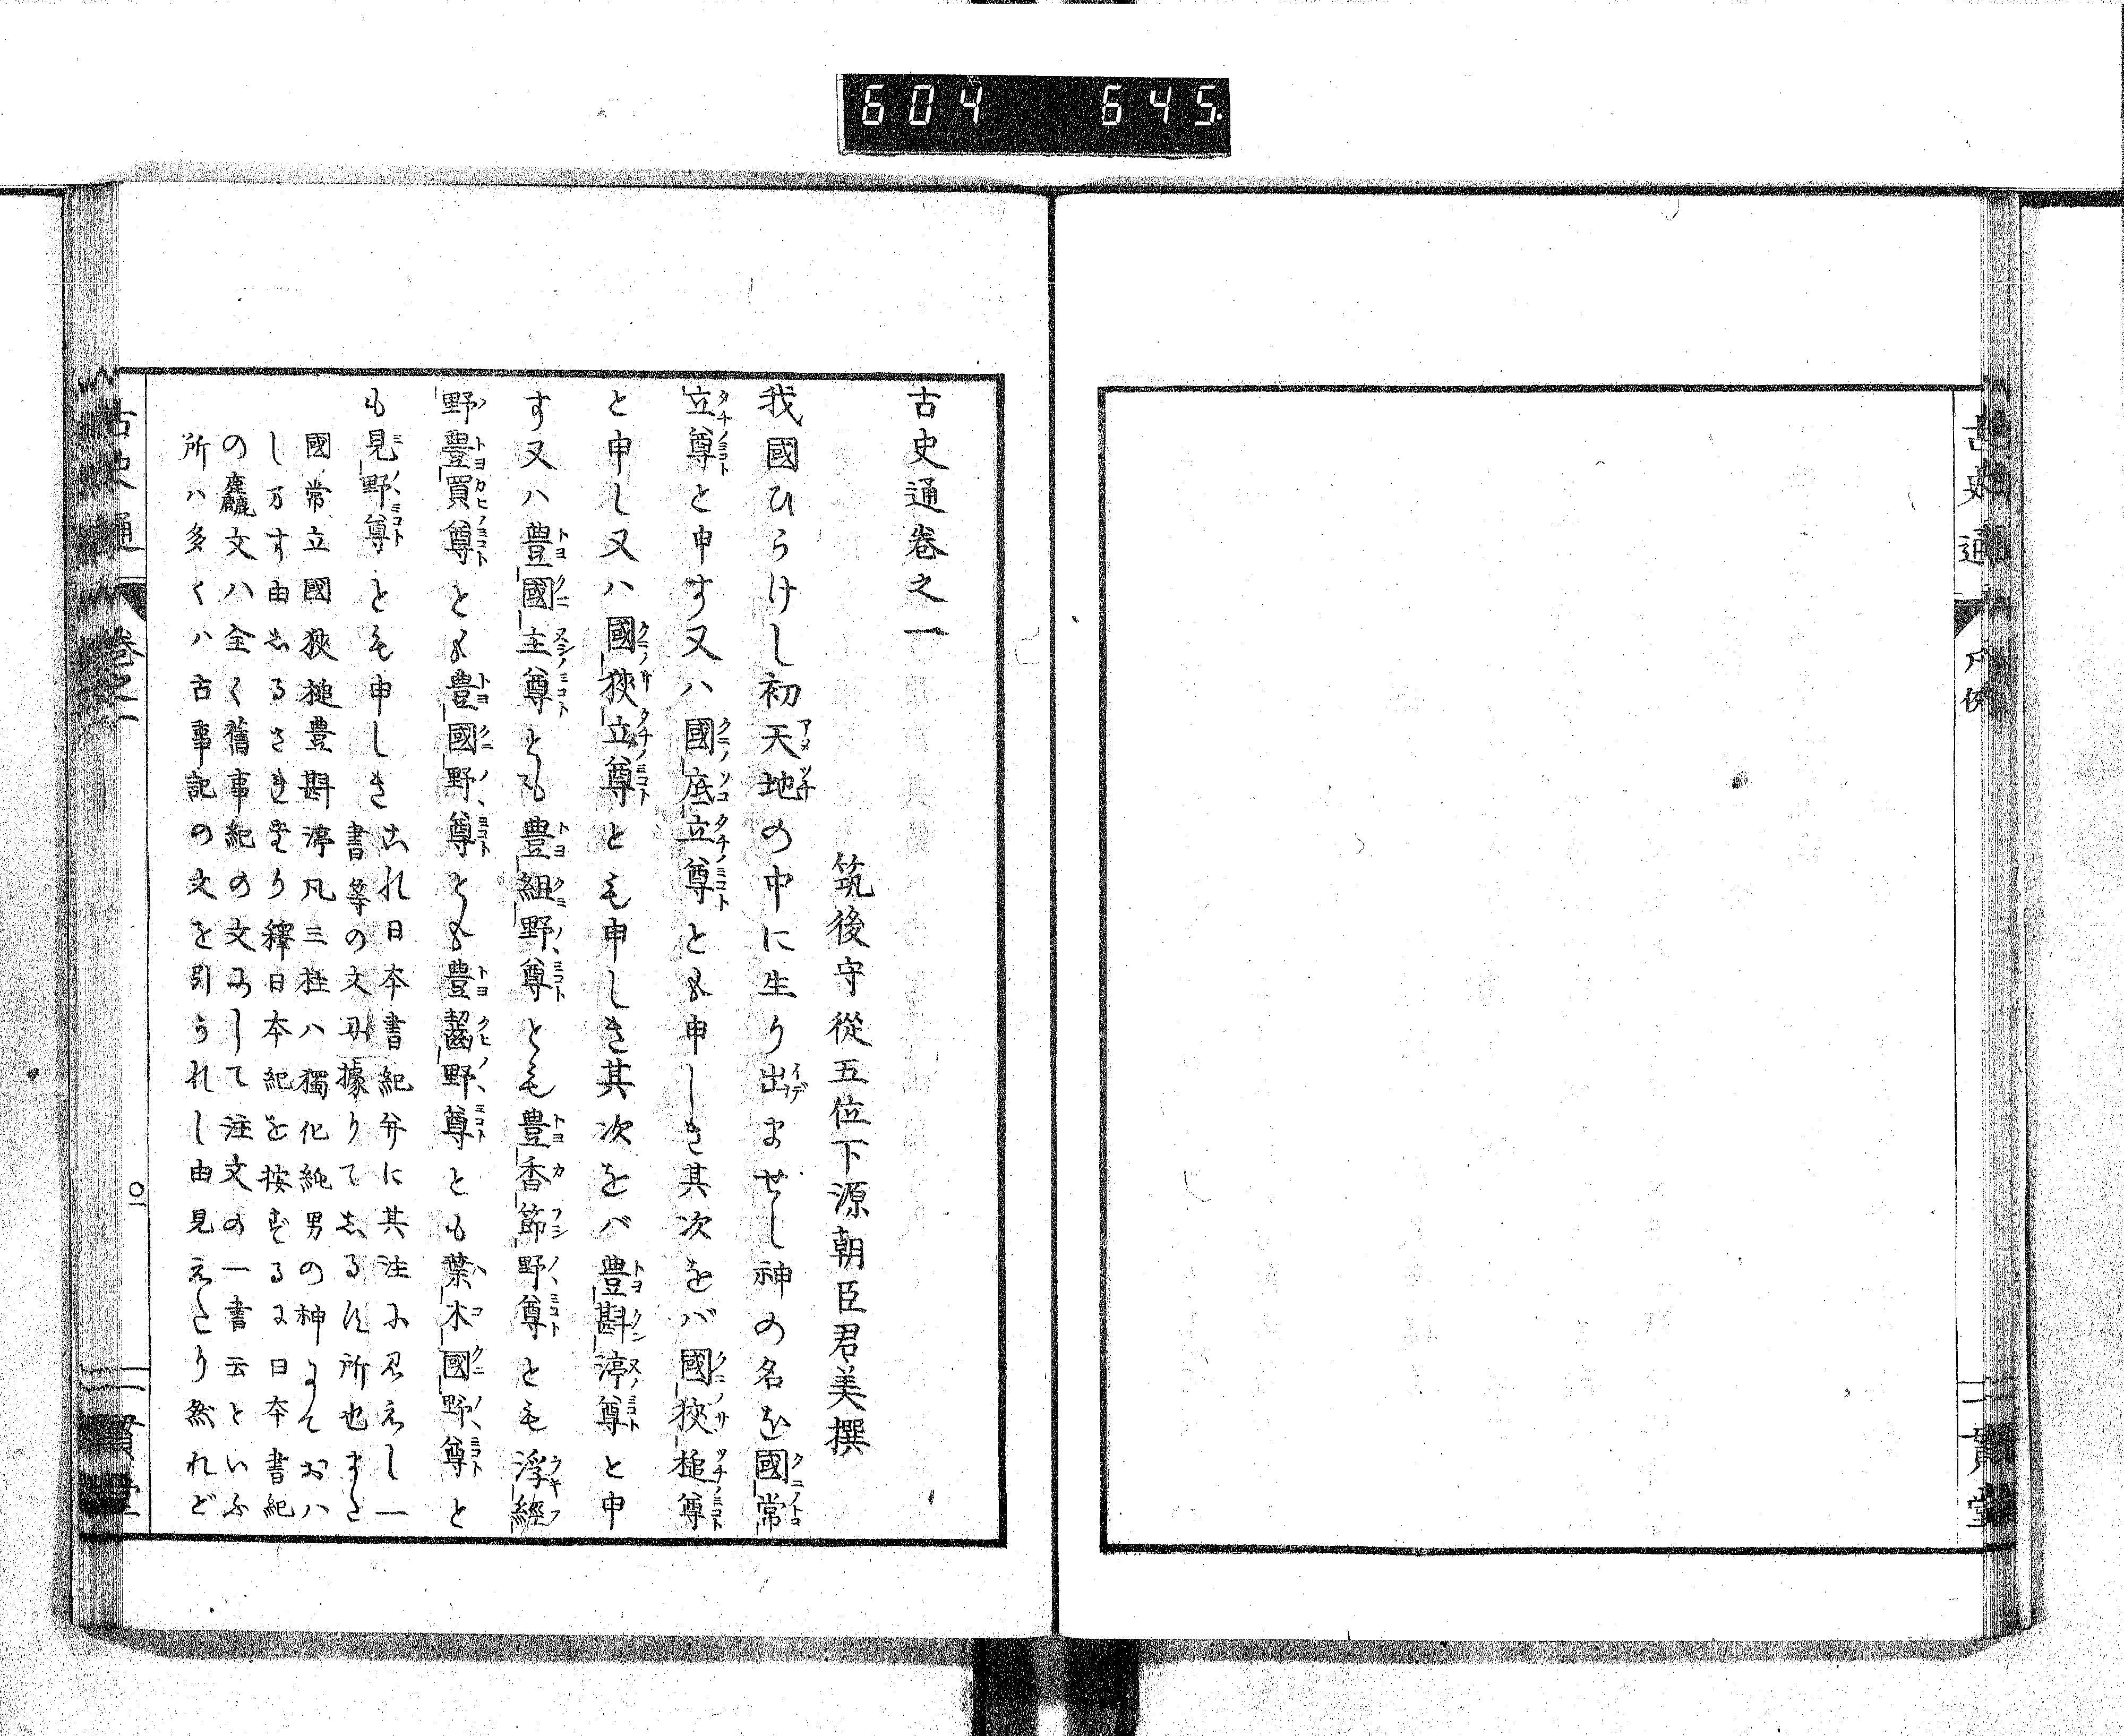 604 645
古史通 凡例
一貫堂
古史通卷之一
筑後守從五位下源朝臣君美撰
我國ひらけし初天地の中に生り出ませし神の名を國常
立尊と申す又ハ國底立尊とも申しき其次をバ國狹槌尊
と申し又ハ國狹立尊とも申しき其次をバ豊斟渟尊と申
す又ハ豊國主尊とも豊組野尊とも豊香節野尊とも浮經
野豊買尊とも豊國野尊とも豊齧野尊とも葉木國野尊と
も見野尊とも申しき
これ日本書紀并に其注に見えし一
書等の文に據りてしるす所也また
國常立國狹槌豊斟渟凡三柱ハ獨化純男の神にておハ
します由しるされたり釋日本紀を按ずるに日本書紀
の麤文ハ全く舊事紀の文にして注文の一書云といふ
所ハ多くハ古事記の文を引うれし由見えたり然れど
古史通 卷之一 ○一 一貫堂